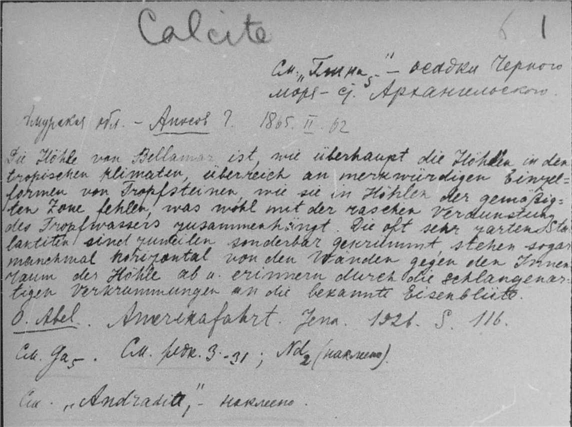 Calcite
6 1
См. „Глина5" – осадки Черного
моря – ст. Архангельского.
Амурская обл. – Аносов ? 1865. II. 62
Die Höhle von Bellamar ist, wie überhaupt die Höhlen in den
tropischen Klimaten, überreich an merkwürdigen Einzel-
formen von Tropfsteinen wie sie in Höhlen der gemäßig-
ten Zone fehlen, was wohl mit der raschen Verdunstung
des Tropfwassers zusammenhängt. Die oft sehr zarten Sta-
laktiten sind zuweilen sonderbar gekrümmt, stehen sogar
manchmal horizontal von den Wänden gegen den Innen-
raum der Höhle ab u. erinnern durch die schlangenar-
tigen Verkrümmungen an die bekannte Eisenblüte.
O. Abel. Amerikafahrt. Jena. 1926. S. 116.
См. Ga5. См. редк. 3.-31; Nd2 (наклеено).
См. „Andradite", – наклеено.